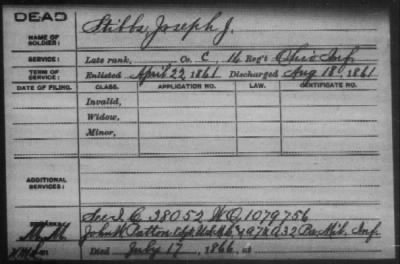 DEAD
NAME OF SOLDIER: Stibbs, Joseph J.
SERVICE: Late rank, Co. C, 16 Reg't Ohio Inf.
TERM OF SERVICE: Enlisted April 22, 1861 Discharged Aug 18, 1861
DATE OF FILING. CLASS. APPLICATION NO. LAW. CERTIFICATE NO.
Invalid,
Widow,
Minor,
ADDITIONAL SERVICES:
See I. C. 38052 W. O. 1079756
John W Patton 32 Pa. Mil. Inf
Died July 17, 1866, at